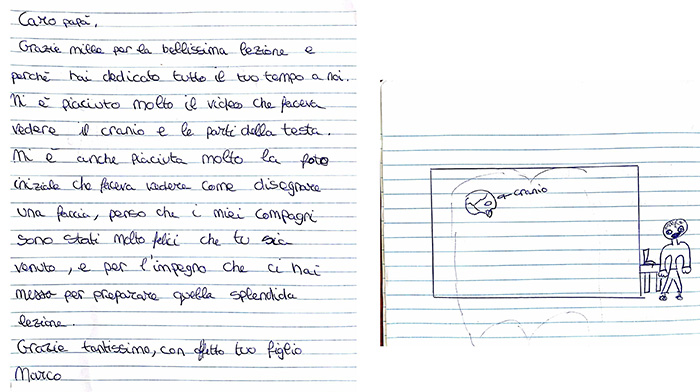 Caro papà,
Grazie mille per la bellissima lezione e
perché hai dedicato tutto il tuo tempo a noi.
Mi è piaciuto molto il video che faceva
vedere il cranio e le parti della testa.
Mi è anche piaciuta molto la foto
iniziale che faceva vedere come disegnare
una faccia, penso che i miei compagni
sono stati molto felici che tu sia
venuto, e per l'impegno che ci hai
messo per preparare quella splendida
lezione.
Grazie tantissimo, con affetto tuo figlio
Marco
cranio